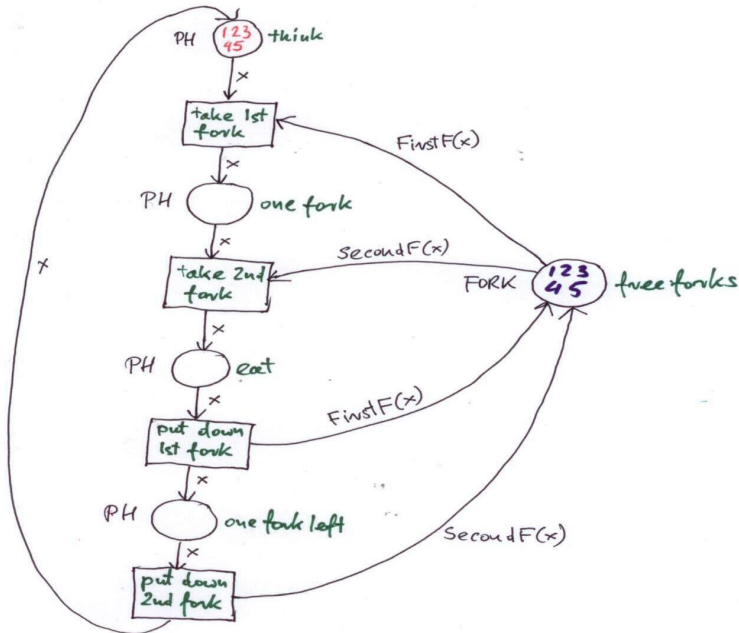 PH
1 2 3
4 5
think
x
take 1st
fork
FirstF(x)
x
PH
one fork
x
SecondF(x)
take 2nd
fork
x
FORK
1 2 3
4 5
free forks
x
PH
eat
x
FirstF(x)
put down
1st fork
x
PH
one fork left
x
SecondF(x)
put down
2nd fork